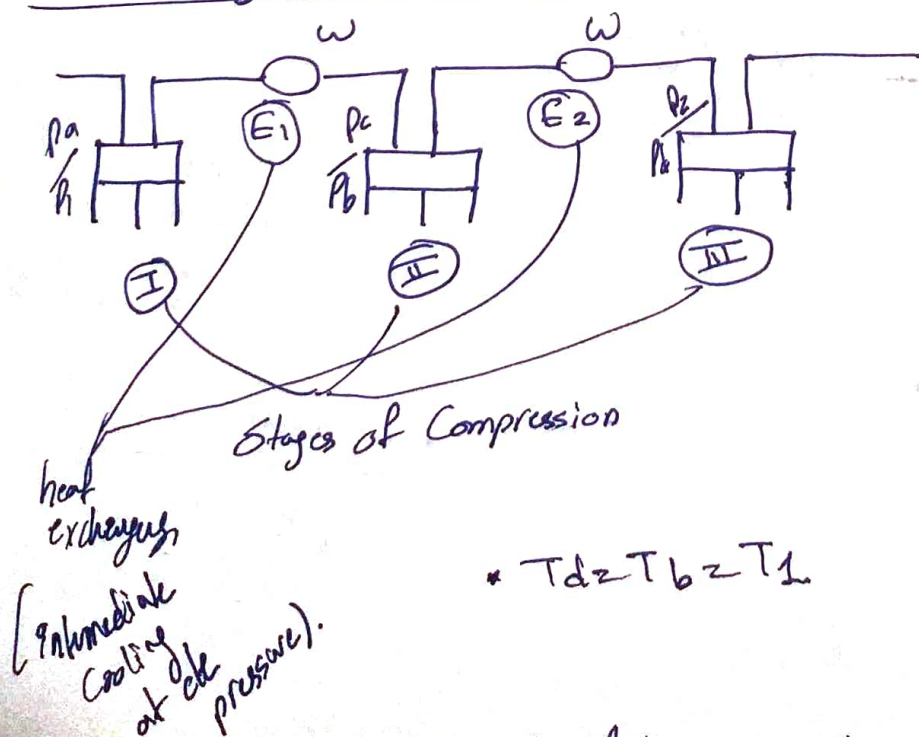 ω ω
Pa
P1
E1
Pc
Pb
E2
P2
Pd
I
II
III
Stages of Compression
heat
exchangers
[intermediate
cooling
at cte
pressure).
• Td=Tb=T1